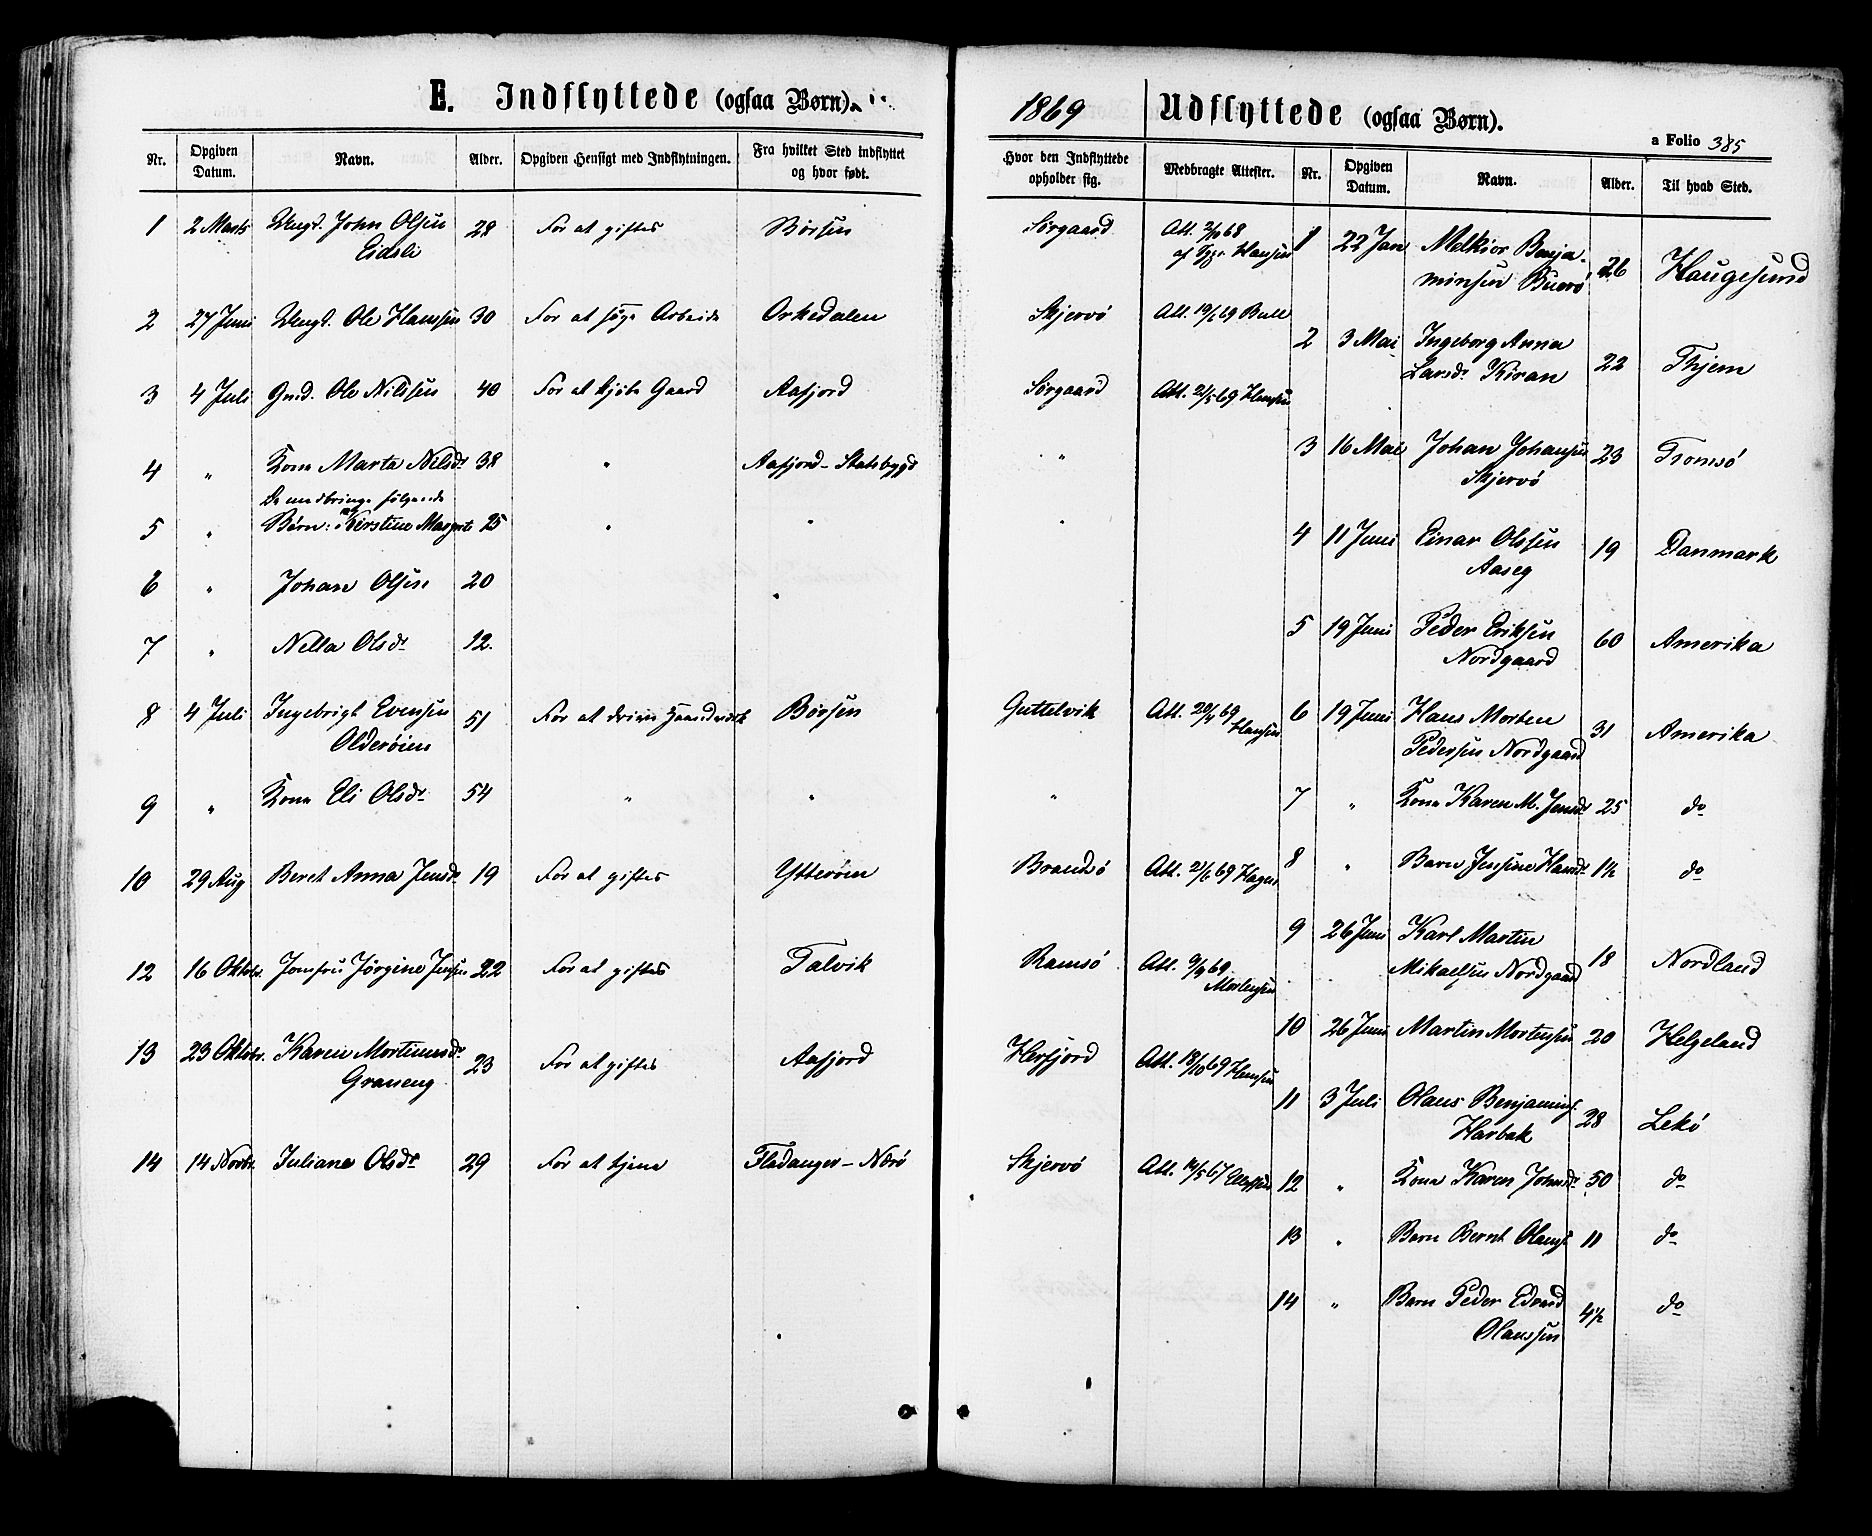 E. Indflyttede (ogsaa Børn).
1869
Udflyttede (ogsaa Børn).
a Folio 385
Nr. Opgiven Datum. Navn. Alder. Opgiven Hensigt med Indflytningen. Fra hvilket Sted indflyttet og hvor født. Hvor den Indflyttede opholder sig. Medbragte Attester.
1 2 Marts Ungd. John Olsen 28 For at giftes Børsen Sørgaard Att.
Eidsli Hansen
2 27 Juni Ungd. Ole Hanssen 30 For at søge Arbeide Orkedalen Skjervö Att. 19/6 69 Bull
3 4 Juli Gmd. Ole Nilssen 40 For at kjøbe Gaard Aafjord Sørgaard Att. 21/5 69 Hansen
4 " Kone Marta Nilsdr 38 " Aafjord - Stadsbygd "
De medbringe følgende
5 " Børn: Kirstine Margrete 25 " " "
6 " Johan Olsen 20 "
7 " Nella Olsdr 12.
8 4 Juli Ingebrigt Evensen 51 For at drive Haandværk Börsen Guttelvik Att. 20/4 69
Olderöien Hansen
9 " Kone Eli Olsdr 54 " " "
10 29 Aug Beret Anna Jensdr 19 For at giftes Ytterøen Brandsö Att. 21/6 69 Hagen
12 16 Oktobr. Jomfru Jörgine Jensen 22 For at giftes Talvik Ramsö Att. 9/9 69
Mortensen
13 23 Oktobr. Karen Mortinusdr. 23 For at giftes Aafjord Herfjord Att. 18/10 69 Hansen
Graneng
14 14 Novbr. Juliane Olsdr 29 For at tjene Fladanger - Nærö Skjervö Att. 14/5 67
Nr. Opgiven Datum. Navn. Alder. Til hvad Sted.
1 22 Jan Melkior Benja- 26 Haugesund
minsen Buerö
2 3 Mai Ingeborg Anna 22 Thjem
Larsdr Kiran
3 16 Mai Johan Johansen 23 Tromsö
Skjervö
4 11 Juni Einar Olssen 19 Danmark
Aaseg
5 19 Juni Peder Eriksen 60 Amerika
Nordgaard
6 19 Juni Hans Morten 31 Amerika
Pedersen Nordgaard
7 " Kone Karen M. Jensdr 25 do
8 " Barn Jensine Hansdr 1½ do
9 26 Juni Karl Martin 18 Nordland
Mikaelsen Nordgaard
10 26 Juni Martin Mortensen 20 Helgeland
11 3 Juli Olaus Benjamins. 28 Lekö
Harbak
12 " Kone Karen Johnsdr 50 do
13 " Barn Bernt Olaus. 11 do
14 " Barn Peder Edvard 4½ do
Olaussen